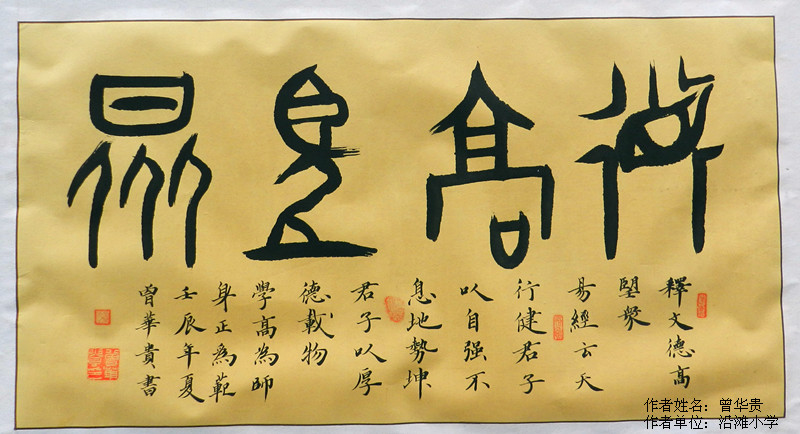 德高朢衆
釋文德高
朢衆
易經云天
行健君子
以自强不
息地勢坤
君子以厚
德載物
學高為師
身正為範
壬辰年夏
曾華貴書
作者姓名：曾华贵
作者单位：沿滩小学